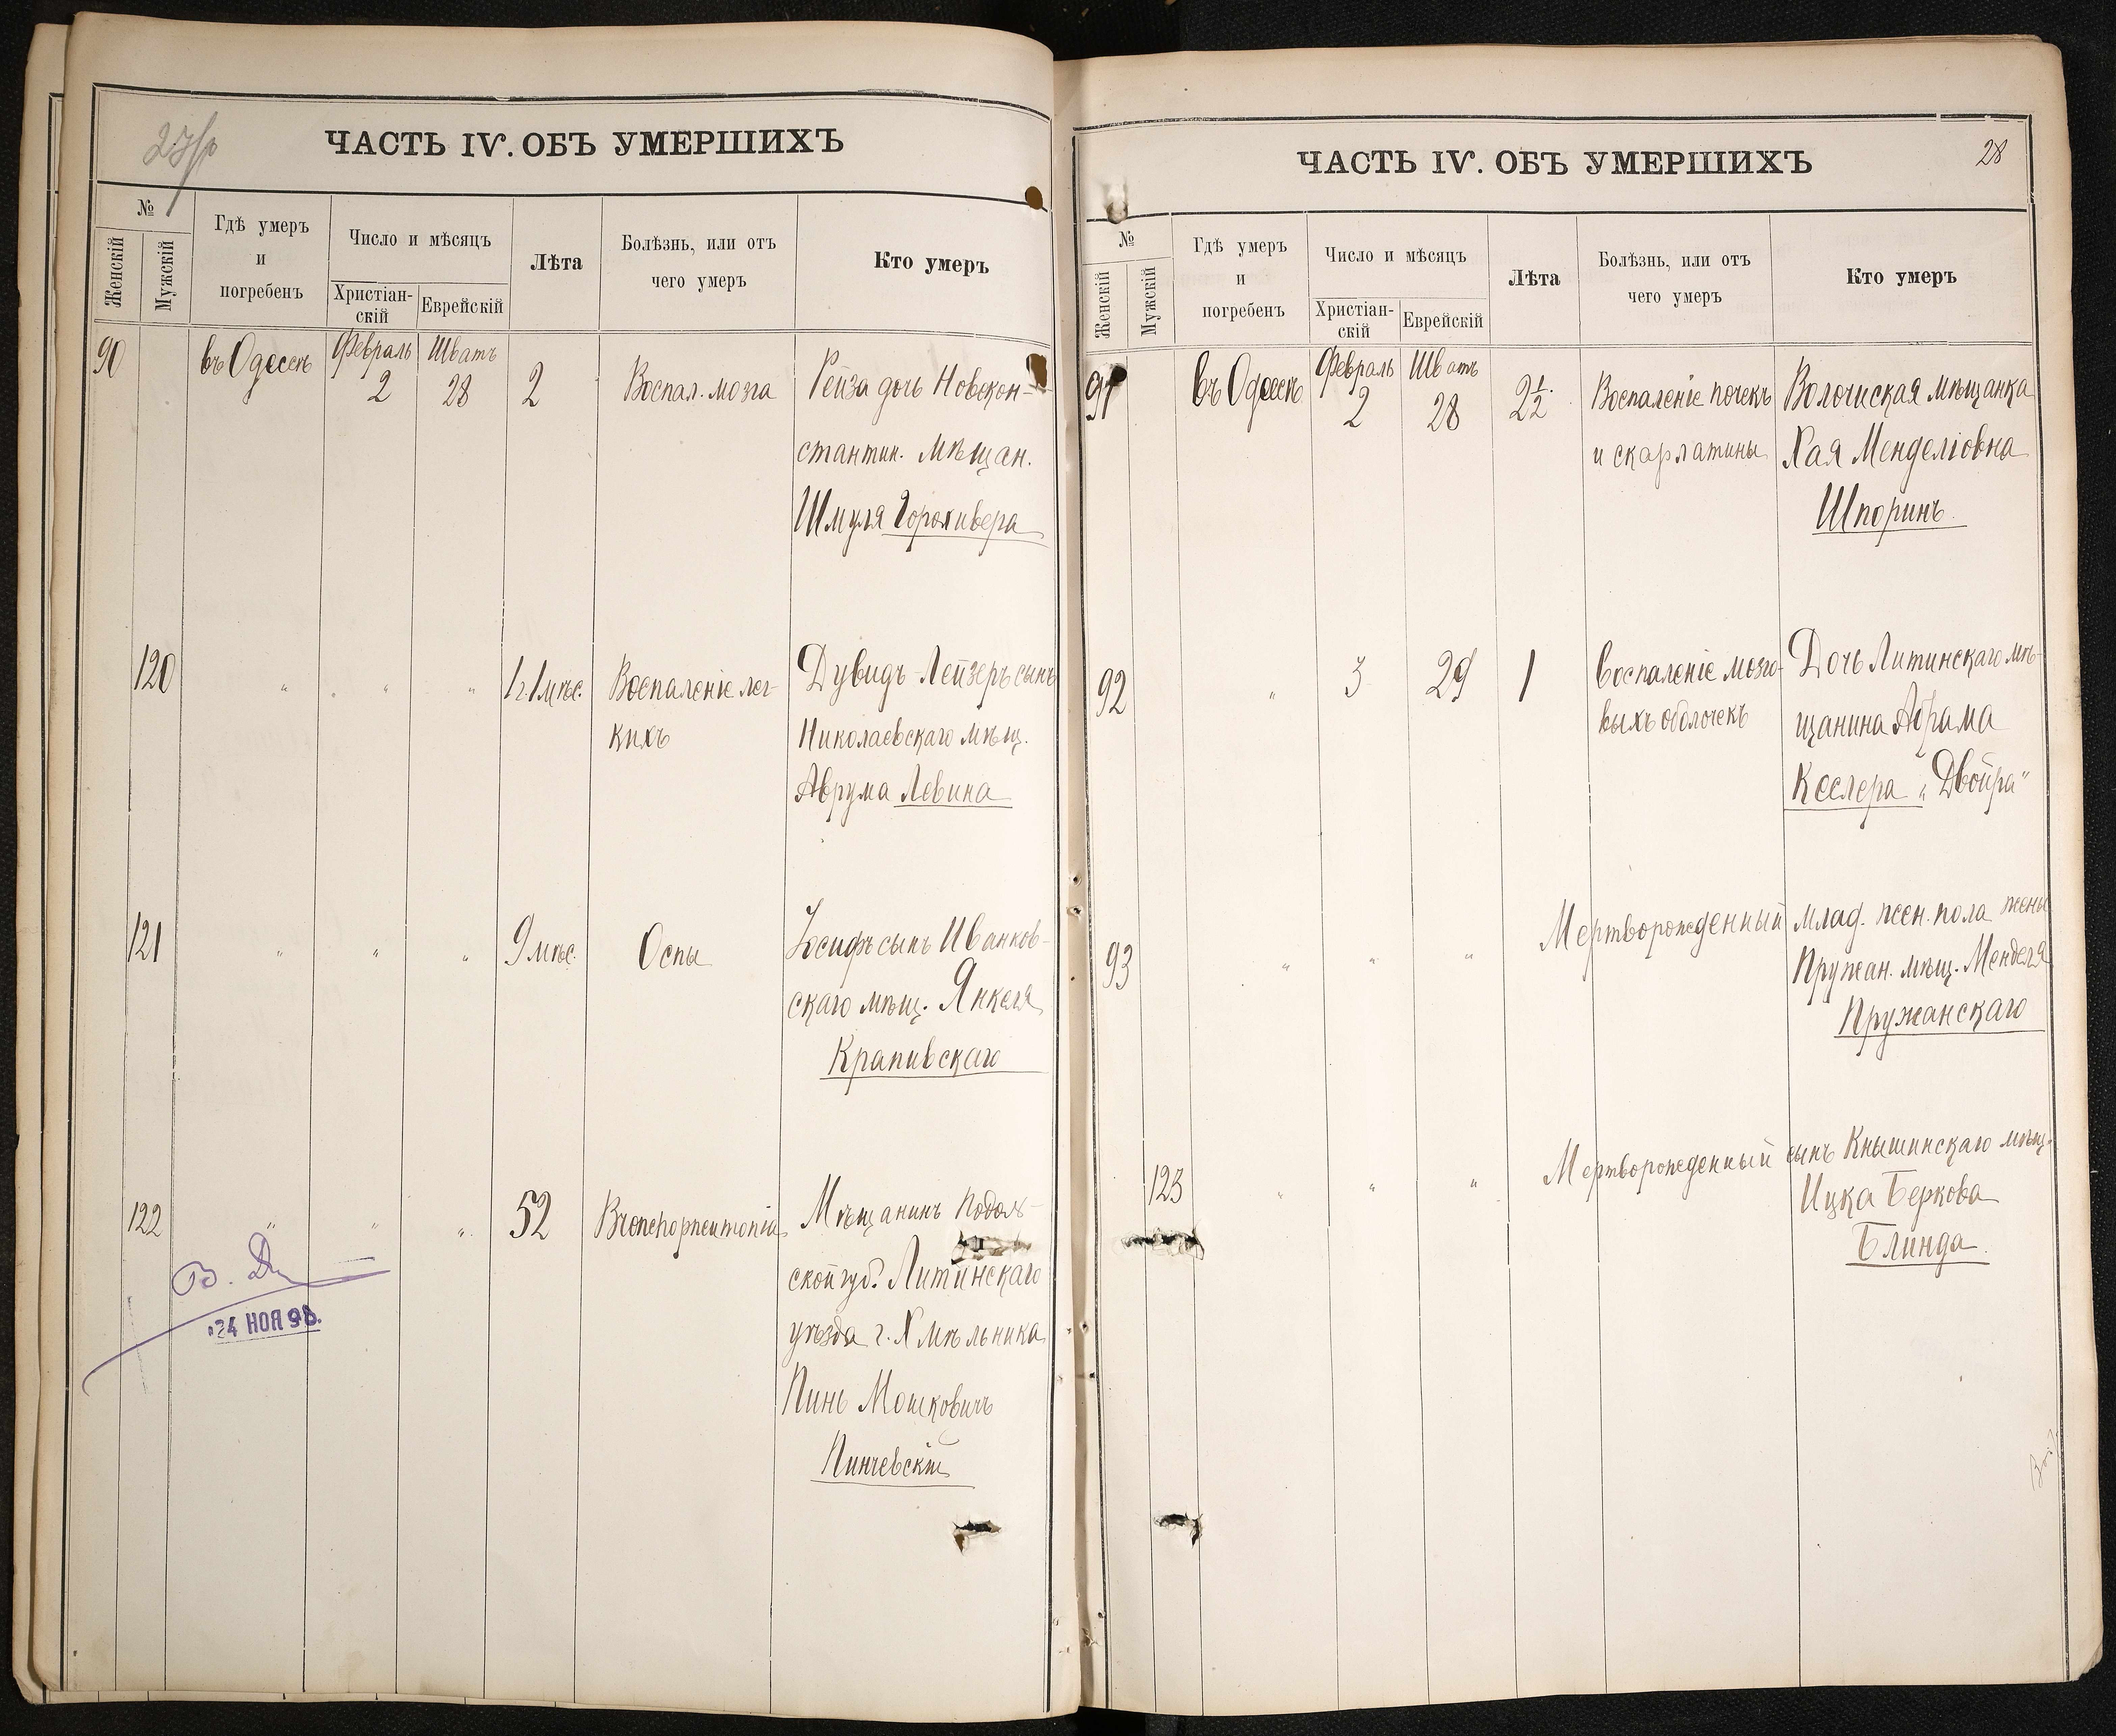 ЧАСТЬ IV. ОБЪ УМЕРШИХЪ
№
Женскій
Мужскій
Гдѣ умеръ
и
погребенъ
Число и мѣсяцъ
Христіан-
скій
Еврейскій
Лѣта
Болѣзнь, или отъ
чего умеръ
Кто умеръ
90 въ Одессѣ Февраль Шватъ
2 28 2 Воспал. мозга Рейза дочь Новокон-
стантин. мѣщан.
Шмуля Горохивера
120 " " " " 1 г. 1 мѣс. Воспаленіе лег- Дувидъ-Лейзеръ сынъ
кихъ Николаевскаго мѣщ.
Аврума Левина
121 " " " 9 мѣс. Оспы Іосифъ сынъ Иванков-
скаго мѣщ. Янкеля
Крапивскаго
122 " " " 52 Bronchopneumonia Мѣщанинъ Подоль-
ской губ. Литинскаго
уѣзда г. Хмѣльника
Пинь Мошковичъ
Пинчевскій
24 НОЯ 98.
ЧАСТЬ IV. ОБЪ УМЕРШИХЪ
28
№
Женскій
Мужскій
Гдѣ умеръ
и
погребенъ
Число и мѣсяцъ
Христіан-
скій
Еврейскій
Лѣта
Болѣзнь, или отъ
чего умеръ
Кто умеръ
91 въ Одессѣ Февраль Шватъ
2 28 2 1/2. Воспаленіе почекъ Волочиская мѣщанка
и скарлатины Хая Менделіовна
Шпоринъ
92 " 3 29 1 Воспаленіе мозго- Дочь Литинскаго мѣ-
выхъ оболочекъ щанина Абрама
Кеслера "Двойра"
93 " " " Мертворожденный млад. жен. пола жены
Пружан. мѣщ. Менделя
Пружанскаго
123 " " " Мертворожденный сынъ Кнышинскаго мѣщ.
Ицка Беркова
Блинда